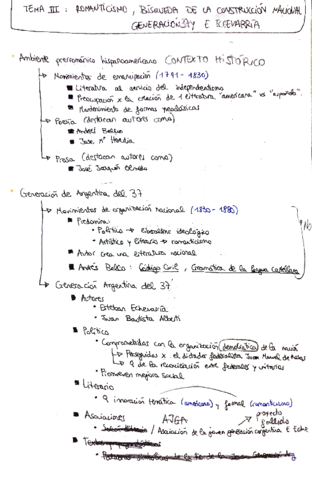 TEMA III: ROMANTICISMO, BÚSQUEDA DE LA CONSTRUCCIÓN NACIONAL
GENERACIÓN 37 Y E ECEVARRIA
Ambiente prerromántico hispanoamericano CONTEXTO HISTÓRICO
Movimientos de emancipación (1791-1830)
Literatura al servicio del independentismo
Preocupación x la creación de 1 literatura "americana" vs "española".
Mantenimiento de formas neoclásicas
Poesía (destacan autores como)
Andrés Bello
Jose Mª Heredia
Prosa (destacan autores como)
José Joaquín Olmedo
Generación de Argentina del 37
Movimientos de organización nacional (1830-1880)
Predomina:
Político → liberalismo ideológico
Artístico y literario → romanticismo
Autor crea una literatura nacional
Andrés Bello: Código Civil, Gramática de la lengua castellana
Generación Argentina del 37
Autores
Esteban Echevarría
Juan Bautista Alberti
Político
Comprometidos con la organización democrática de la nación
Perseguidos x el dictador federalista Juan Manuel de Rosas
de la reconciliación entre federales y unitarios
Promueven mejora social
Literario
innovación temática (americana) y formal (romanticismo)
proyecto
fallido
Asociaciones AJGA
Asociación de la joven generación argentina E Eche